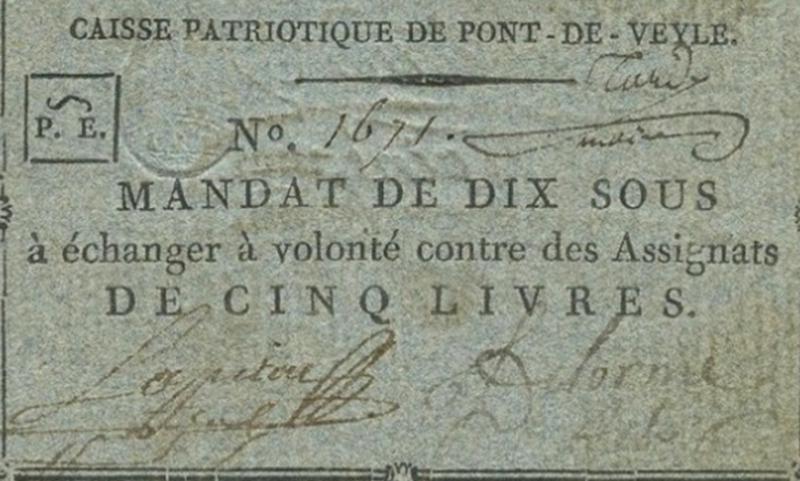 CAISSE PATRIOTIQUE DE PONT-DE-VEYLE.
P. E.
Nº. 1671.
MANDAT DE DIX SOUS
à échanger à volonté contre des Assignats
DE CINQ LIVRES.
Delorme